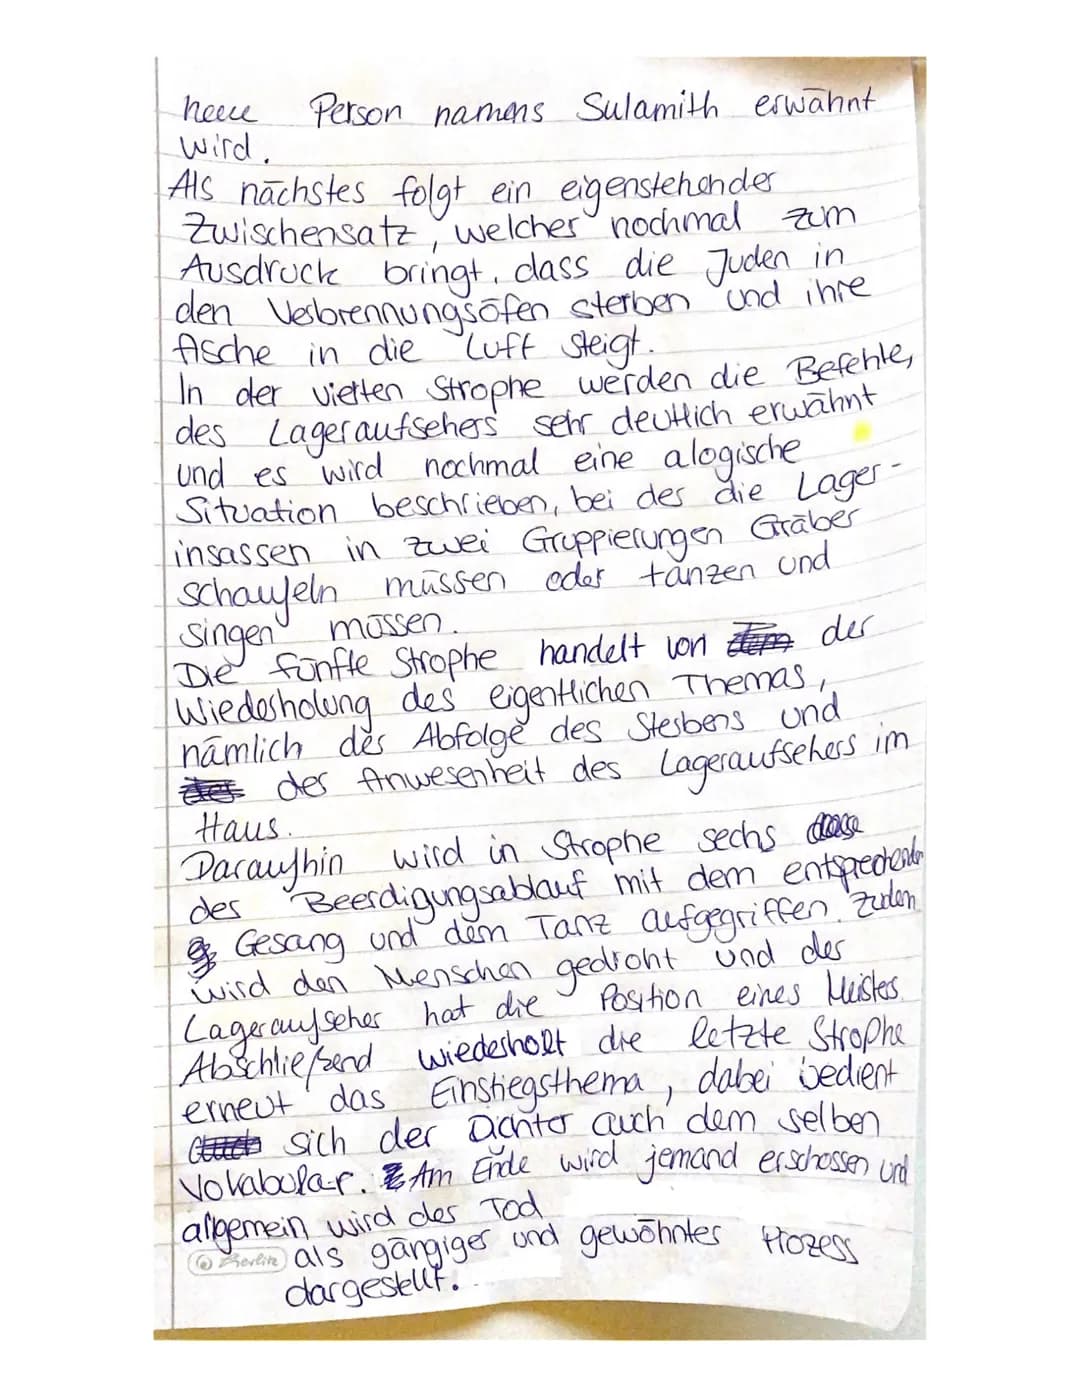 neue Person namens Sulamith erwähnt
wird.
Als nächstes folgt ein eigenstehender
Zwischensatz, welcher nochmal zum
Ausdruck bringt, dass die Juden in
den Verbrennungsöfen sterben und ihre
Asche in die Luft steigt.
In der vierten Strophe werden die Befehle,
des Lageraufsehers sehr deutlich erwähnt
und es wird nochmal eine alogische
Situation beschrieben, bei der die Lager-
insassen in zwei Gruppierungen Gräber
schaufeln müssen oder tanzen und
singen müssen.
Die fünfte Strophe handelt von der
Wiederholung des eigentlichen Themas,
nämlich der Abfolge des Sterbens und
der Anwesenheit des Lageraufsehers im
Haus.
Daraufhin wird in Strophe sechs
der Beerdigungsablauf mit dem entsprechenden
Gesang und dem Tanz aufgegriffen. Zudem
wird den Menschen gedroht und der
Lageraufseher hat die Position eines Meisters.
Abschließend wiederholt die letzte Strophe
erneut das Einstiegsthema, dabei bedient
sich der Dichter auch dem selben
Vokabular. Am Ende wird jemand erschossen und
allgemein wird der Tod
als gängiger und gewöhnter Prozess
dargestellt.